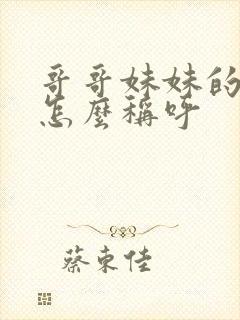 哥哥妹妹的
怎麼稱呼
蔡東佳